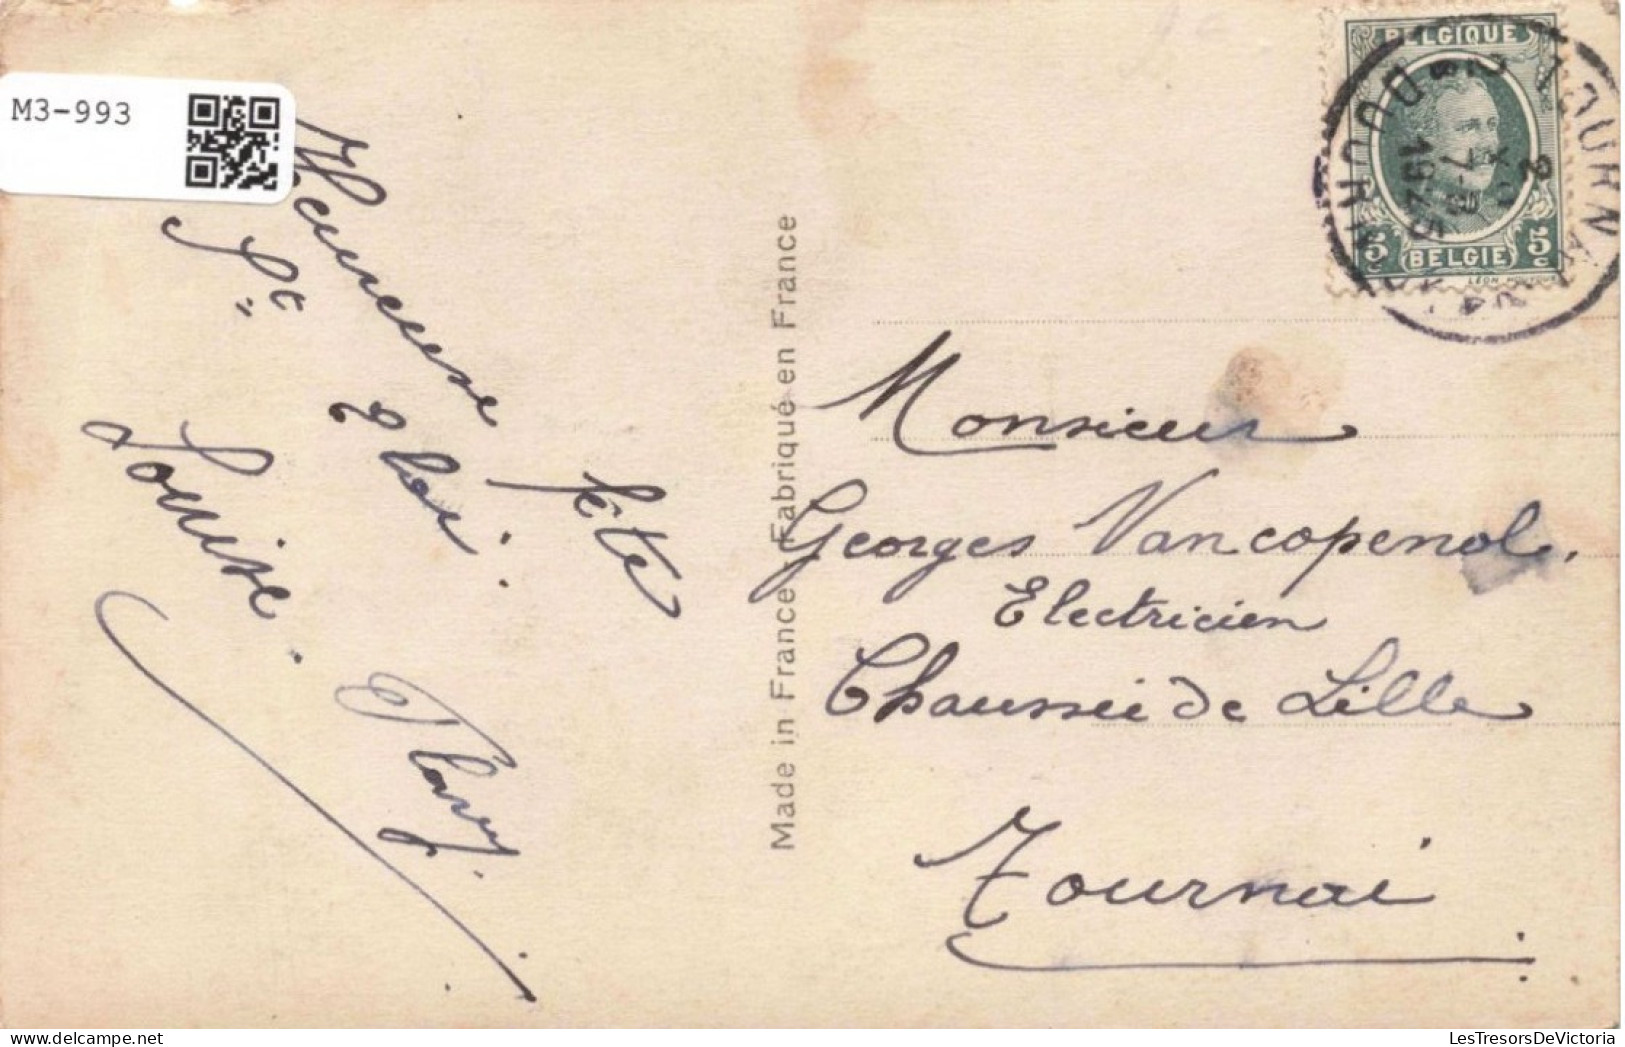 M3-993
Heureuse fête
St Eloi.
Louise
Made in France Fabriqué en France
BELGIQUE
5c 5c
BELGIE
TOURNAI
DOORNIJK
2
7-8
1925
Monsieur
Georges Vancopenol.
Electricien
Chaussée de Lille
Tournai
LesTresorsDeVictoria - delcampe.net